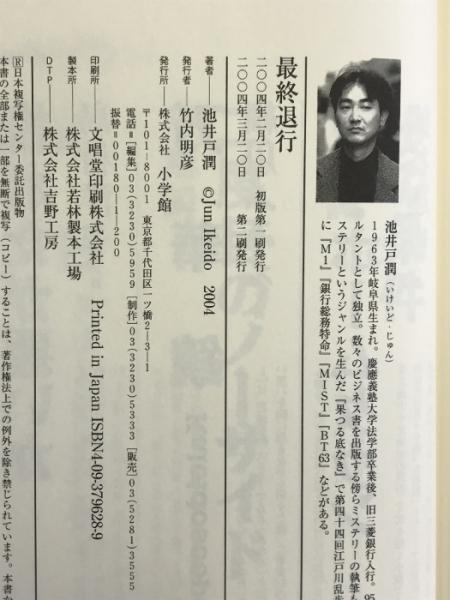 池井戸潤（いけいど・じゅん）
1963年岐阜県生まれ。慶應義塾大学法学部卒業後、旧三菱銀行入行。95
ルタントとして独立。数々のビジネス書を出版する傍らミステリーの執筆も
ステリーというジャンルを生んだ『果つる底なき』で第四十四回江戸川乱歩
に『M1』『銀行総務特命』『MIST』『BT63』などがある。
最終退行
二〇〇四年二月二〇日　初版第一刷発行
二〇〇四年三月二〇日　第二刷発行
著者――池井戸潤　©Jun Ikeido　2004
発行者――竹内明彦
発行所――株式会社　小学館
〒101-8001　東京都千代田区一ツ橋2-3-1
電話＝［編集］03(3230)5959［制作］03(3230)5333［販売］03(5281)3555
振替＝00180-1-200
印刷所――文唱堂印刷株式会社　Printed in Japan ISBN4-09-379628-9
製本所――株式会社若林製本工場
DTP――株式会社吉野工房
Ⓡ日本複写権センター委託出版物
本書の全部または一部を無断で複写（コピー）することは、著作権法上での例外を除き禁じられています。本書か